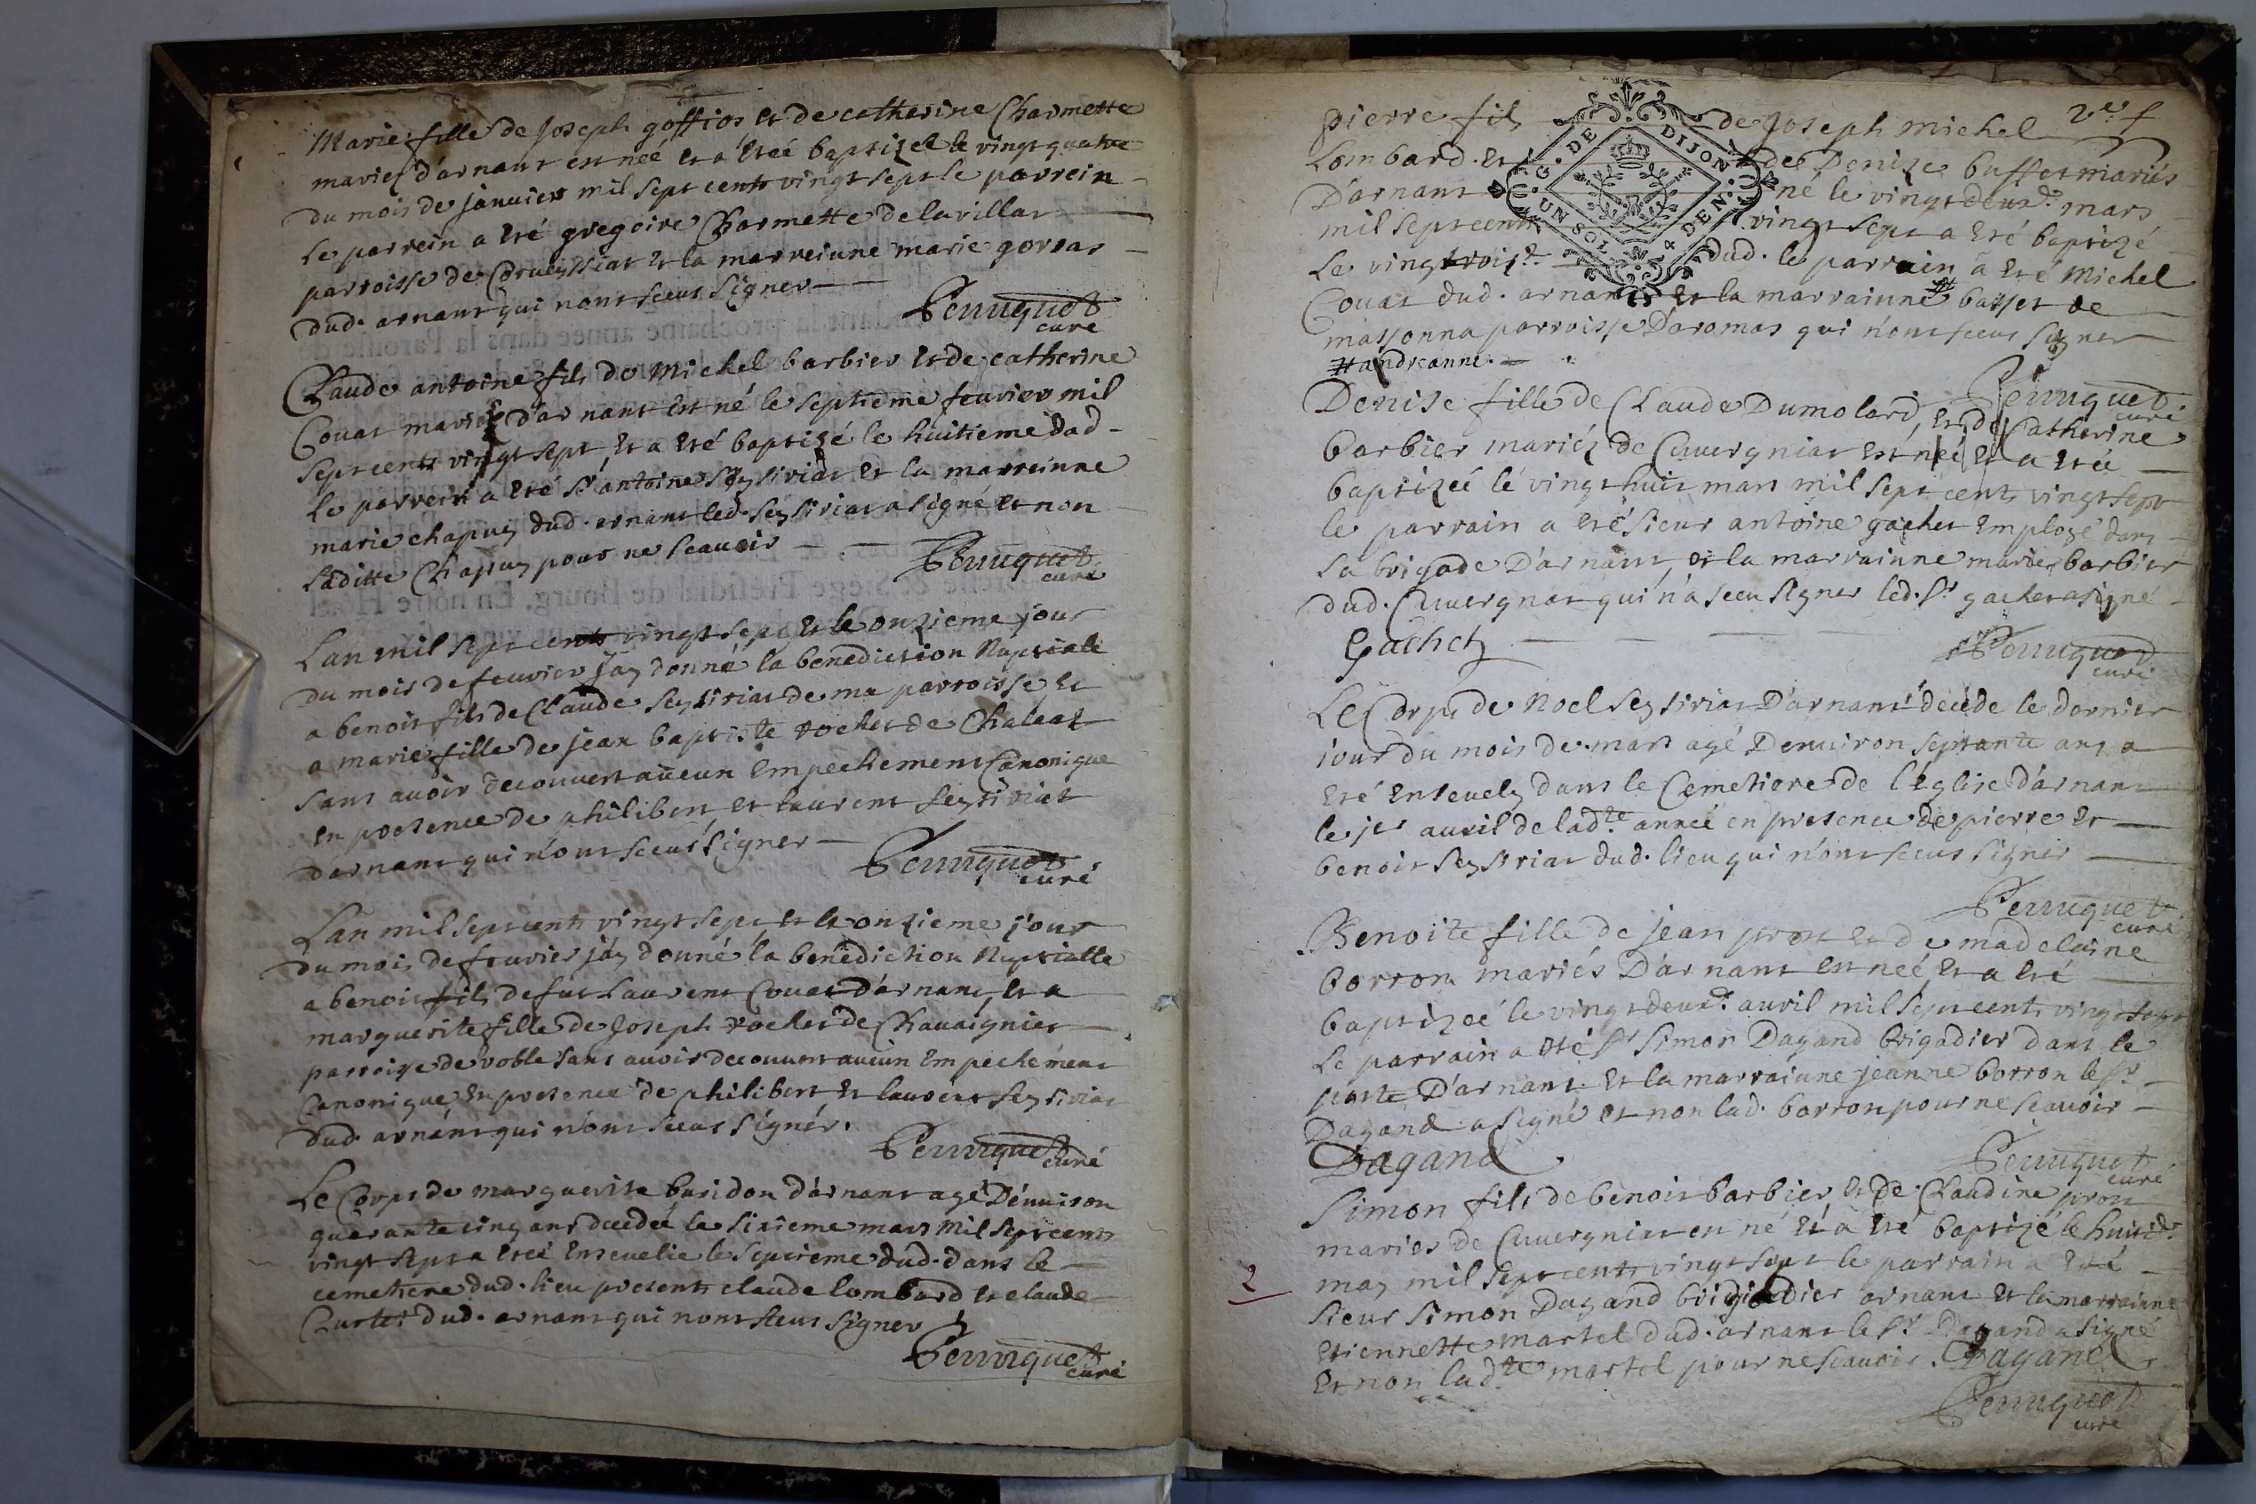 Marie fille de Joseph goffior et de catherine Charmette
mariez d'arnant est neé et a eteé baptizeé le vingt quatre
du mois de janvier mil sept cents vingt sept le parrein
Le parrein a eté gregoire Charmette de la villar
parroisse de et la marreinne marie gorvas
dud. arnant qui n'ont sceut signer
Perruquet
curé
Claude antoine fils de Michel barbier et de catherine
Couat mariez d'arnant est né le septieme feuvrier mil
sept cents vingt sept et a eté baptizé le huitieme dud.
le parrein a eté Sr antoine Seyssiriat et la marreinne
marie chapuy dud. arnant led. Seyssiriat a signé et non
laditte Chapuy pour ne scavoir
Perruquet
curé
L'an mil sept cents vingt sept et le onzieme jour
du mois de feuvrier J'ay donné la benediction Nuptiale
a benoit fils de Claude Seyssiriat de ma parroisse et
a marie fille de jean baptiste rochet de Chaleat
sans avoir decouvert aucun Empechement Canonique
en presence de philibert et laurent Seyssiriat
d'arnant qui n'ont sceut signer
Perruquet
curé
L'an mil sept cents vingt sept et le onzieme jour
du mois de feuvrier j'ay donné la benediction Nuptialle
a benoit fils de fut Laurent Couat d'arnant, et a
marguerite fille de Joseph rochet de Chavaignier
parroise de noble sans avoir decouvert aucun Empechement
Canonique en presence de philibert et laurent Seyssiriat
dud. arnant qui n'ont sceut signér.
Perruquet
curé
Le Corps de marguerite buridon d'arnant agé D'environ
quarante cinq ans decedeé le sixieme mars mil sept cents
vingt sept a eteé ensevelie le septieme dud. dans le
cemetiere dud. lieu presents claude lombard et claude
Curtet dud. arnant qui n'ont sceut signer
Perruquet
curé
2e f
pierre fils de Joseph michel
Lombard et de Denize buffet mariés
D'arnant né le vingt deux. mars
mil sept cents vingt sept a eté baptizé
Le vingt trois. dud. le parrain a eté Michel
Couat dud. arnant et la marrainne # buffet de
massonna parroisse D'aromas qui n'ont sceut signer
# andreanne.
Perruquet
curé
G. DE DIJON
UN SOL 4 DEN.
Denise fille de Claude Dumolard, et de Catherine
barbier mariéz de Cuvergniat est neé et a eteé
baptizeé le vingt huit mars mil sept cents vingt sept
le parrain a eté sieur antoine gachet Employé dans
la brigade D'arnant, et la marrainne marie barbier
dud. Cuvergnat qui n'a sceu signer led. Sr gachet a signé
Gachet
Perruquet
curé
Le Corps de Noel Seyssiriat D'arnant decéde le dernier
jour du mois de mars agé D'environ septante ans a
eté Ensevely dans le Cemetiere de l'Eglise D'arnant
le jer auvil de ladte anneé en presence de pierre et
benoit Seyssiriat dud. lieu qui n'ont sceut signer
Perruquet
curé
Benoite fille de jean prost et de madelaine
borron mariés D'arnant est neé, et a eté
baptizeé le vingt deux. auvril mil sept cents vingt sept
Le parrain a eté Sr Simon Dagand brigadier dans le
poste D'arnant. et la marrainne jeanne borron le Sr
Dagand a signé et non lad. borron pour ne scavoir
Dagand.
Perruquet
curé
Simon fils de benoit barbier et de Claudine prost
mariés de Cuvergniat est né et à eté baptizé le huit.
may mil sept cents vingt sept le parrain a eté
2
Sieur Simon Dagand brigadier arnant et la marrainne
Etiennette martel dud. arnant le Sr Dagand a signé
Et non ladte martel pour ne scavoir. Dagand
Perruquet
curé